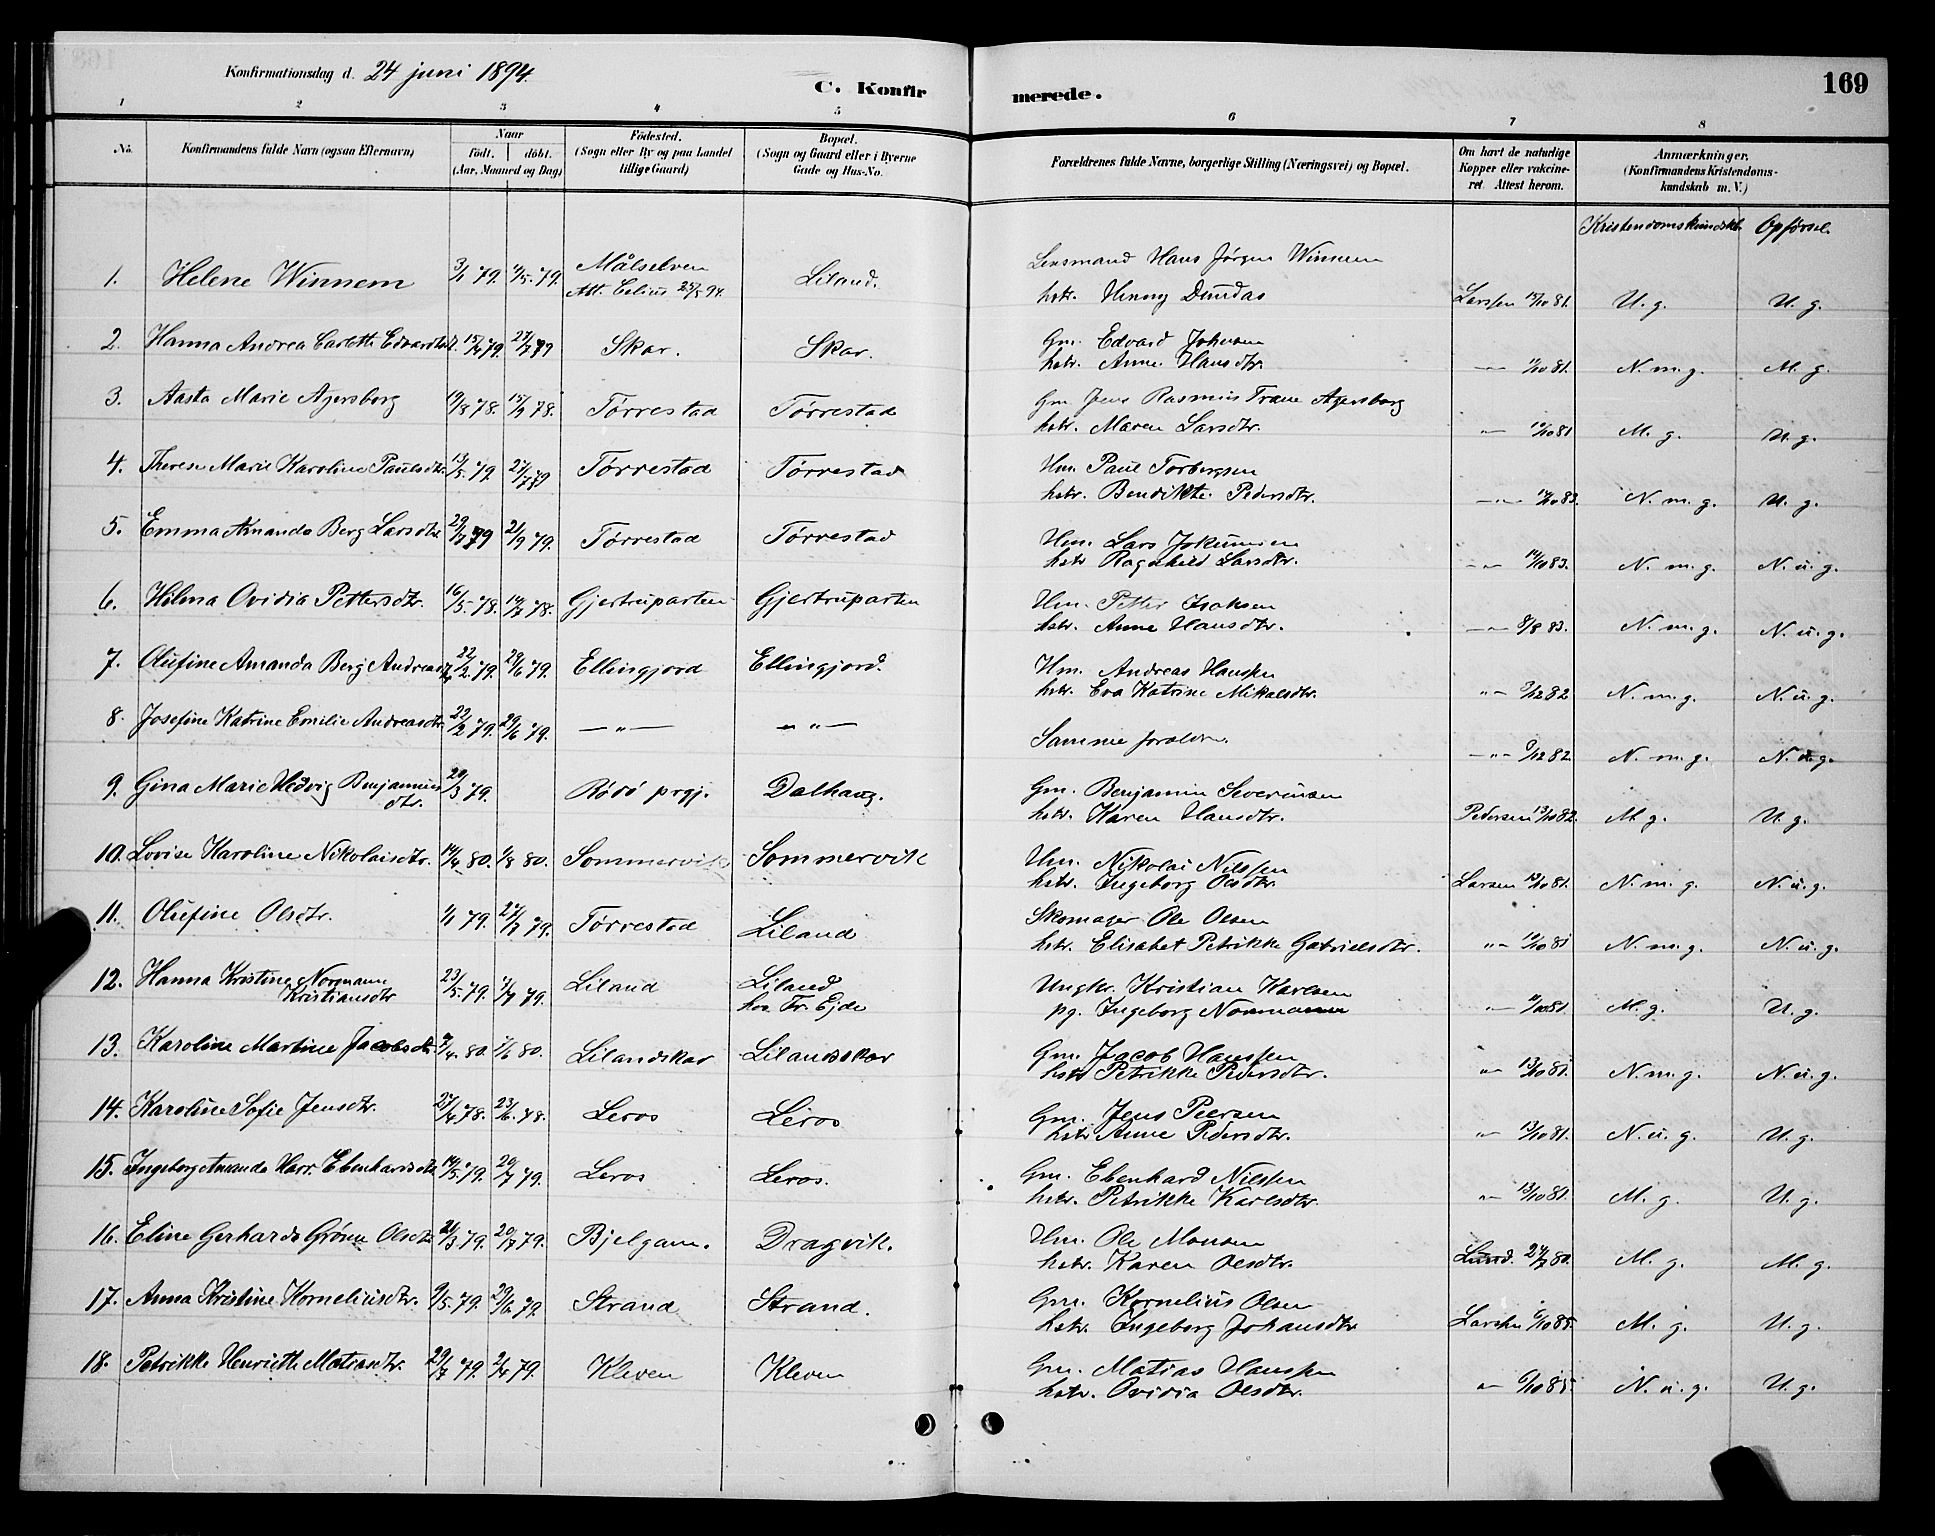 Konfirmationsdag d. 24 juni 1894.
C. Konfirmerede.
169
1 2 3 4 5 6 7 8
No.
Konfirmandens fulde Navn (ogsaa Efternavn)
Naar
födt. döbt.
(Aar, Maaned og Dag)
Födested.
(Sogn eller By og paa Landet
tillige Gaard)
Bopæl.
(Sogn og Gaard eller i Byerne
Gade og Hus-No.
Forældrenes fulde Navne, borgerlige Stilling (Næringsvei) og Bopæl.
Om havt de naturlige
Kopper eller vakcine-
ret. Attest herom.
Anmærkninger.
(Konfirmandens Kristendoms-
kundskab m. V.)
Kristendomskundskb. Opførsel.
Lensmand Hans Jørgen Winnem
1. Helene Winnem 3/1 79. 79. Målselven Liland.
Att. Celius 25/5 94.
hstr. Henny Dundas Larssen 81. U. g. U. g.
2. Hanna Andrea 15/4 79. 27/7 79 Skar. Skar. Gm. Edvard Johnsen
hstr. Anne Hansdtr. 81. N. m. g. M. g.
3. Aasta Marie Agersborg 19/8 78. 15/9 78. Tørrestad Tørrestad Gm Jens Rasmus Trane Agersborg
hstr. Maren Larsdtr. 81 M. g. U. g.
4. Therese Marie Karoline Paulsdtr. 13/5. 79. 27/7 79 Tørrestad Tørrestad Hm. Paul Torbergsen
hstr. Bendikte Pedersdtr. 83. N. m. g. U. g.
5. Emma Amanda Berg Larsdtr. 79 21/9 79. Tørrestad Tørrestad Hm. Lars
hstr Ragnhild Larsdtr. 83. N. m. g. N. u. g.
6. Hilma Ovidia Pettersdtr. 16/5. 78. 14/7 78. Gjertruparten Gjertruparten Hm. Petter Isaksen
hstr. Anne Hansdtr. 8/8 83. N. m. g. N. u. g.
7. Olufine Amanda Berg Andreasdtr 22/2. 79. 29/6 79. Ellingjord Ellingjord. Hm. Andreas Hanssen
hstr. Eva Katrine Mikalsdtr. 9/12 82 N. m. g. N. u. g.
8. Josefine Katrine Emilie Andreasdtr. 22/2 79. 29/6 79. — " — — " — Samme foreldre.
9/12 82. N. m. g. N. u. g.
9. Gina Marie Hedvig Benjamins
dtr. 20/3 79. Rödö prgj. Dalhaug. Gm. Benjamin Severinsen
hstr. Karen Hansdtr. Pedersen 13/10 82. M. g. U. g.
10. Lovise Karoline Nikolaisdtr. 14/4 80. 1/8 80. Sommervik Sommervik Hm. Nikolai Nilssen
hstr. Ingeborg Olsdtr. Larsen 81. N. m. g. N. u. g.
11. Olufine Olsdtr. 1/1 79. 27/7 79. Tørrestad Liland Skomager Ole Olsen
hstr. Elisabet Petrikke Gabrielsdtr. 81 N. m. g. N. u. g.
12. Hanna Kristine Normann
Kristiansdtr 23/5. 79. 79. Liland Liland
hos Fr. Ejde Ungkr. Kristian Karlsen
pg. Ingeborg Normann 81. M. g. U. g.
13. Karoline Martine Jacobsdtr. 80. 80. Lilandskar Lilandskar Gm. Jacob Hanssen
hstr Petrikke Pedersdtr. 13/10 81. N. m. g. N. u. g.
14. Karoline Sofie Jensdtr. 27/4 78. 23/6. 78. Leros Leros Gm. Jens Peersen
hstr Anne Pedersdtr. 13/10 81. N. u. g. U. g.
15. Ingeborg Amanda Ebenhardsdtr 14/5. 79. 20/7 79. Leros Leros. Gm. Ebenhard Nilssen
hstr. Petrikke Karlsdtr. 13/10 81. M. g. U. g.
16. Eline Gerharda Grönn Olsdtr 21/3 79. 20/7 79. Bjelgam. Dragvik. Hm. Ole Monsen
hstr. Karen Olsdtr. Lund. 80. M. g. M. g.
17. Anna Kristine Korneliusdtr. 9/5. 79. 29/6 79. Strand Strand. Gm. Kornelius Olsen
hstr. Ingeborg Johansdtr Larssen 6/10 85. M. g. U. g.
18. Petrikke Henriette Matiasdtr. 79. 79. Kleven Kleven Gm. Matias Hanssen
hstr. Ovidia Olsdtr. 6/10 85. N. u. g. U. g.